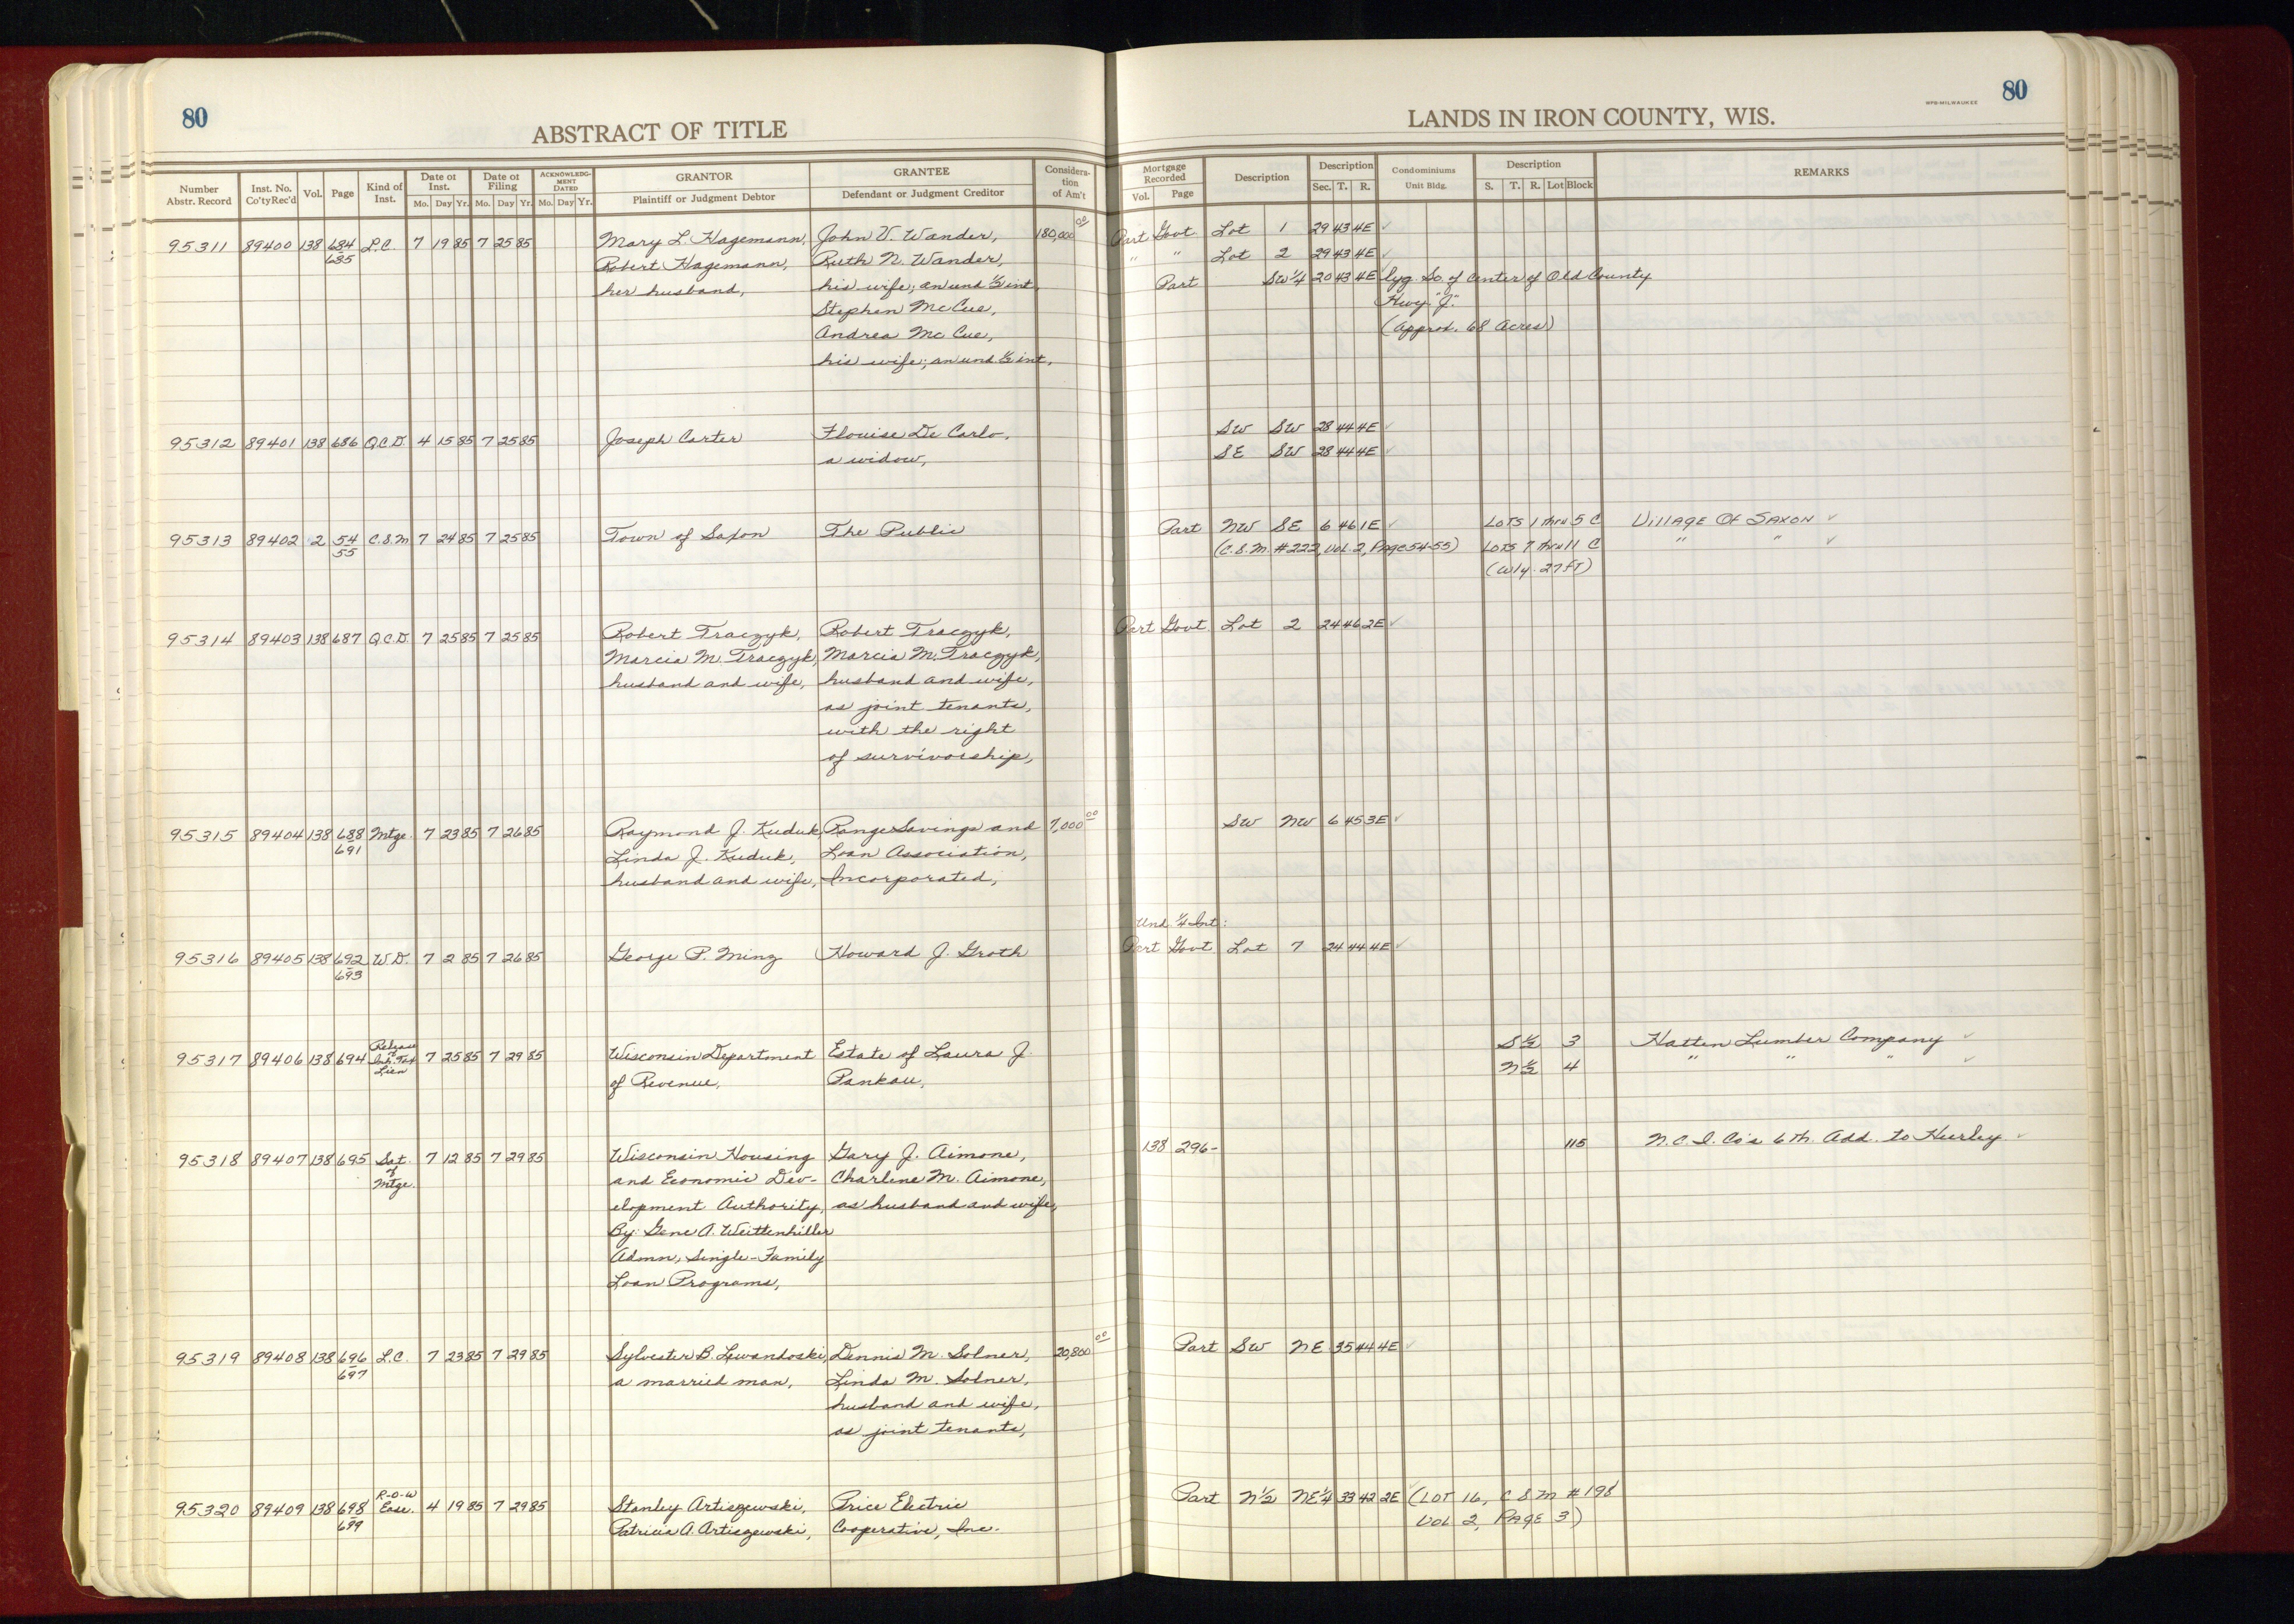 80
ABSTRACT OF TITLE
Number Abstr. Record | Inst. No. Co'ty Rec'd | Vol. | Page | Kind of Inst. | Date of Inst. Mo. Day Yr. | Date of Filing Mo. Day Yr. | ACKNOWLEDGMENT DATED Mo. Day Yr. | GRANTOR Plaintiff or Judgment Debtor | GRANTEE Defendant or Judgment Creditor | Consideration of Am't
95311 89400 138 684 L.C. 7 19 85 7 25 85 Mary L. Hagemann, John V. Wander, 180,000 00
685 Robert Hagemann, Ruth N. Wander,
her husband, his wife; an und ½ int
Stephen McCue,
Andrea McCue,
his wife; an und ½ int,
95312 89401 138 686 Q.C.D. 4 15 85 7 25 85 Joseph Carter Flouise De Carlo,
a widow,
95313 89402 2 54 C.S.M 7 24 85 7 25 85 Town of Saxon The Public
55
95314 89403 138 687 Q.C.D. 7 25 85 7 25 85 Robert Traczyk, Robert Traczyk,
Marcia M. Traczyk, Marcia M. Traczyk,
husband and wife, husband and wife,
as joint tenants,
with the right
of survivorship,
95315 89404 138 688 Mtge. 7 23 85 7 26 85 Raymond J. Kuduk Range Savings and 7,000 00
691 Linda J. Kuduk, Loan Association,
husband and wife, Incorporated,
95316 89405 138 692 W.D. 7 2 85 7 26 85 George P. Ming Howard J. Groth
693
95317 89406 138 694 Release of Inh. Tax Lien 7 25 85 7 29 85 Wisconsin Department Estate of Laura J.
of Revenue, Pankau,
95318 89407 138 695 Sat. of Mtge. 7 12 85 7 29 85 Wisconsin Housing Gary J. Aimone,
and Economic Dev- Charlene M. Aimone,
elopment Authority, as husband and wife,
By: Gene A. Weittenhiller
Admn, Single-Family
Loan Programs,
95319 89408 138 696 L.C. 7 23 85 7 29 85 Sylvester B. Lewandoski, Dennis M. Solner, 20,800 00
697 a married man, Linda M. Solner,
husband and wife,
as joint tenants,
95320 89409 138 698 R-O-W Ease. 4 19 85 7 29 85 Stanley Artiszewski, Price Electric
699 Patricia A. Artiszewski, Cooperative, Inc.
80
WPB-MILWAUKEE
LANDS IN IRON COUNTY, WIS.
Mortgage Recorded Vol. Page | Description | Description Sec. T. R. | Condominiums Unit Bldg. | Description S. T. R. Lot Block | REMARKS
Part Govt Lot 1 29 43 4E ✓
" " Lot 2 29 43 4E ✓
Part SW¼ 20 43 4E lyg. So. of center of Old County
Hwy. "J."
(Approx. 68 Acres)
SW SW 28 44 4E ✓
SE SW 28 44 4E ✓
Part NW SE 6 46 1E ✓ LOTS 1 thru 5 C VillAGE Of SAXON ✓
(C.S.M. #222, VOL 2, PAGE 54-55) LOTS 7 thru 11 C " " ✓
(Wly. 27 FT)
Part Govt. Lot 2 24 46 2E ✓
SW NW 6 45 3E ✓
Und ¼ Int:
Part Govt Lot 7 24 44 4E ✓
S½ 3 Hatten Lumber Company ✓
N½ 4 " " " ✓
138 296- 115 N.C.I. Co's 6th. Add. to Hurley ✓
Part SW NE 35 44 4E ✓
Part N½ NE¼ 33 42 2E ✓ (LOT 16, C S M #198
VOL 2, PAGE 3)